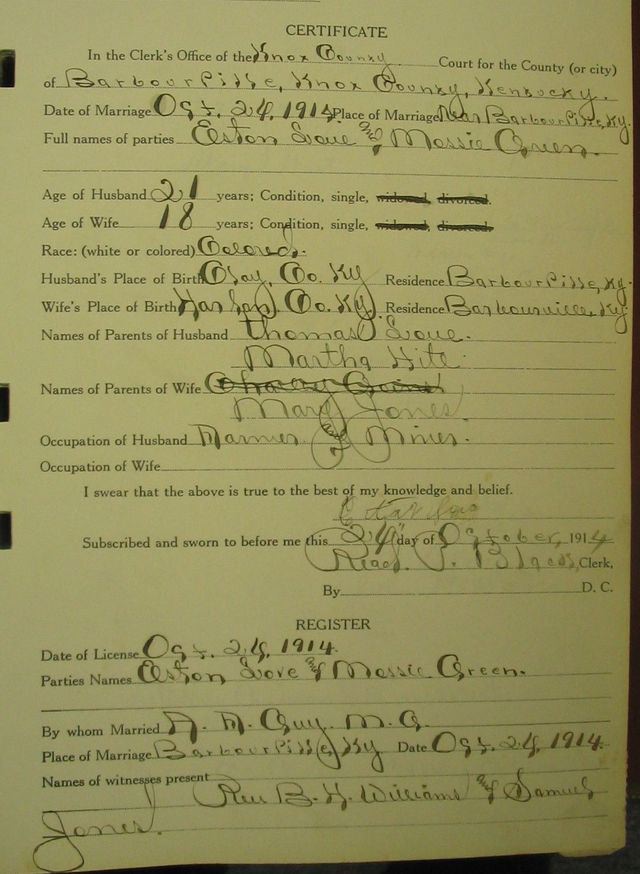 CERTIFICATE
In the Clerk's Office of the Knox County Court for the County (or city)
of Barbourville, Knox County, Kentucky.
Date of Marriage Oct. 24, 1914 Place of Marriage Near Barbourville, Ky.
Full names of parties Elston Love & Mossie Green.
Age of Husband 21 years; Condition, single, widowed, divorced.
Age of Wife 18 years; Condition, single, widowed, divorced.
Race: (white or colored) Colored.
Husband's Place of Birth Clay, Co. Ky Residence Barbourville, Ky.
Wife's Place of Birth Harlan, Co. Ky. Residence Barbourville, Ky.
Names of Parents of Husband Thomas Love.
Martha Hite.
Names of Parents of Wife
Mary Jones.
Occupation of Husband Farmer & Miner.
Occupation of Wife
I swear that the above is true to the best of my knowledge and belief.
Subscribed and sworn to before me this 24" day of October, 1914
Read P. Black, Clerk,
By D. C.
REGISTER
Date of License Oct. 24, 1914.
Parties Names Elston Love & Mossie Green.
By whom Married A. A. Guy. M. G.
Place of Marriage Barbourville, Ky Date Oct. 24, 1914.
Names of witnesses present Rev B. H. Williams & Samuel
Jones.